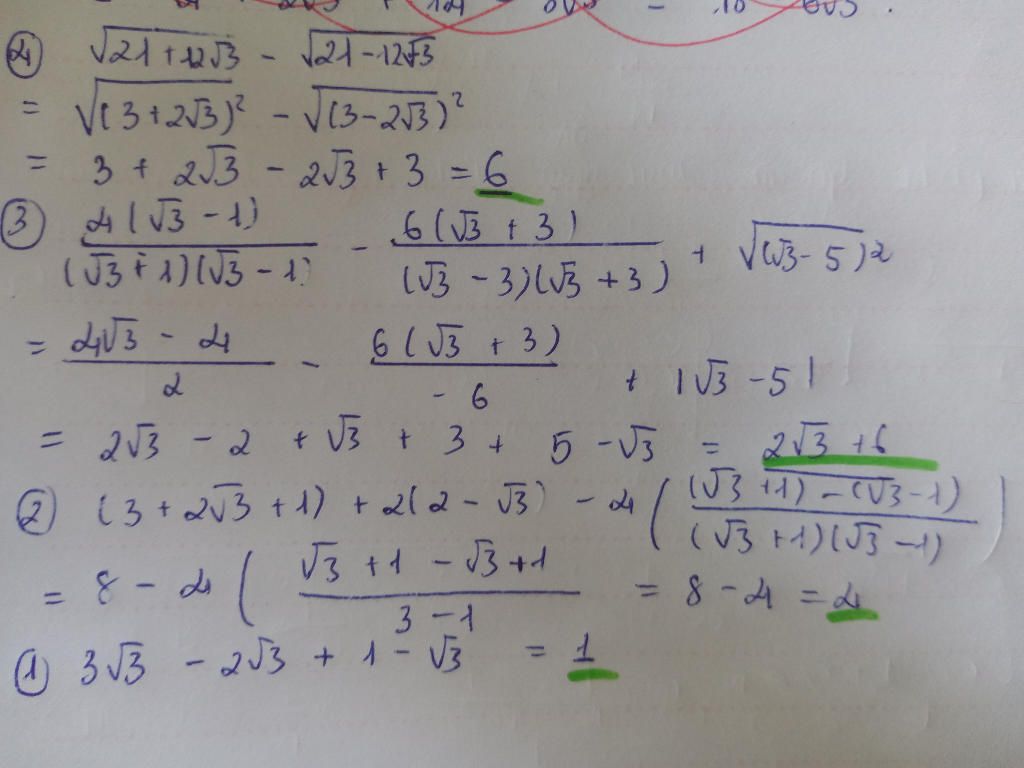 ④ √(21+12√3) - √(21-12√3)
= √(3+2√3)² - √(3-2√3)²
= 3 + 2√3 - 2√3 + 3 = 6
③ 4(√3 - 1) / (√3+1)(√3-1) - 6(√3 + 3) / (√3 - 3)(√3 + 3) + √(√3-5)2
= 4√3 - 4 / 2 - 6(√3 + 3) / - 6 + |√3 - 5|
= 2√3 - 2 + √3 + 3 + 5 - √3 = 2√3 + 6
② (3 + 2√3 + 1) + 2(2 - √3) - 4((√3 + 1) - (√3 - 1) / (√3 + 1)(√3 - 1))
= 8 - 4( √3 + 1 - √3 + 1 / 3 - 1 = 8 - 4 = 4
① 3√3 - 2√3 + 1 - √3 = 1